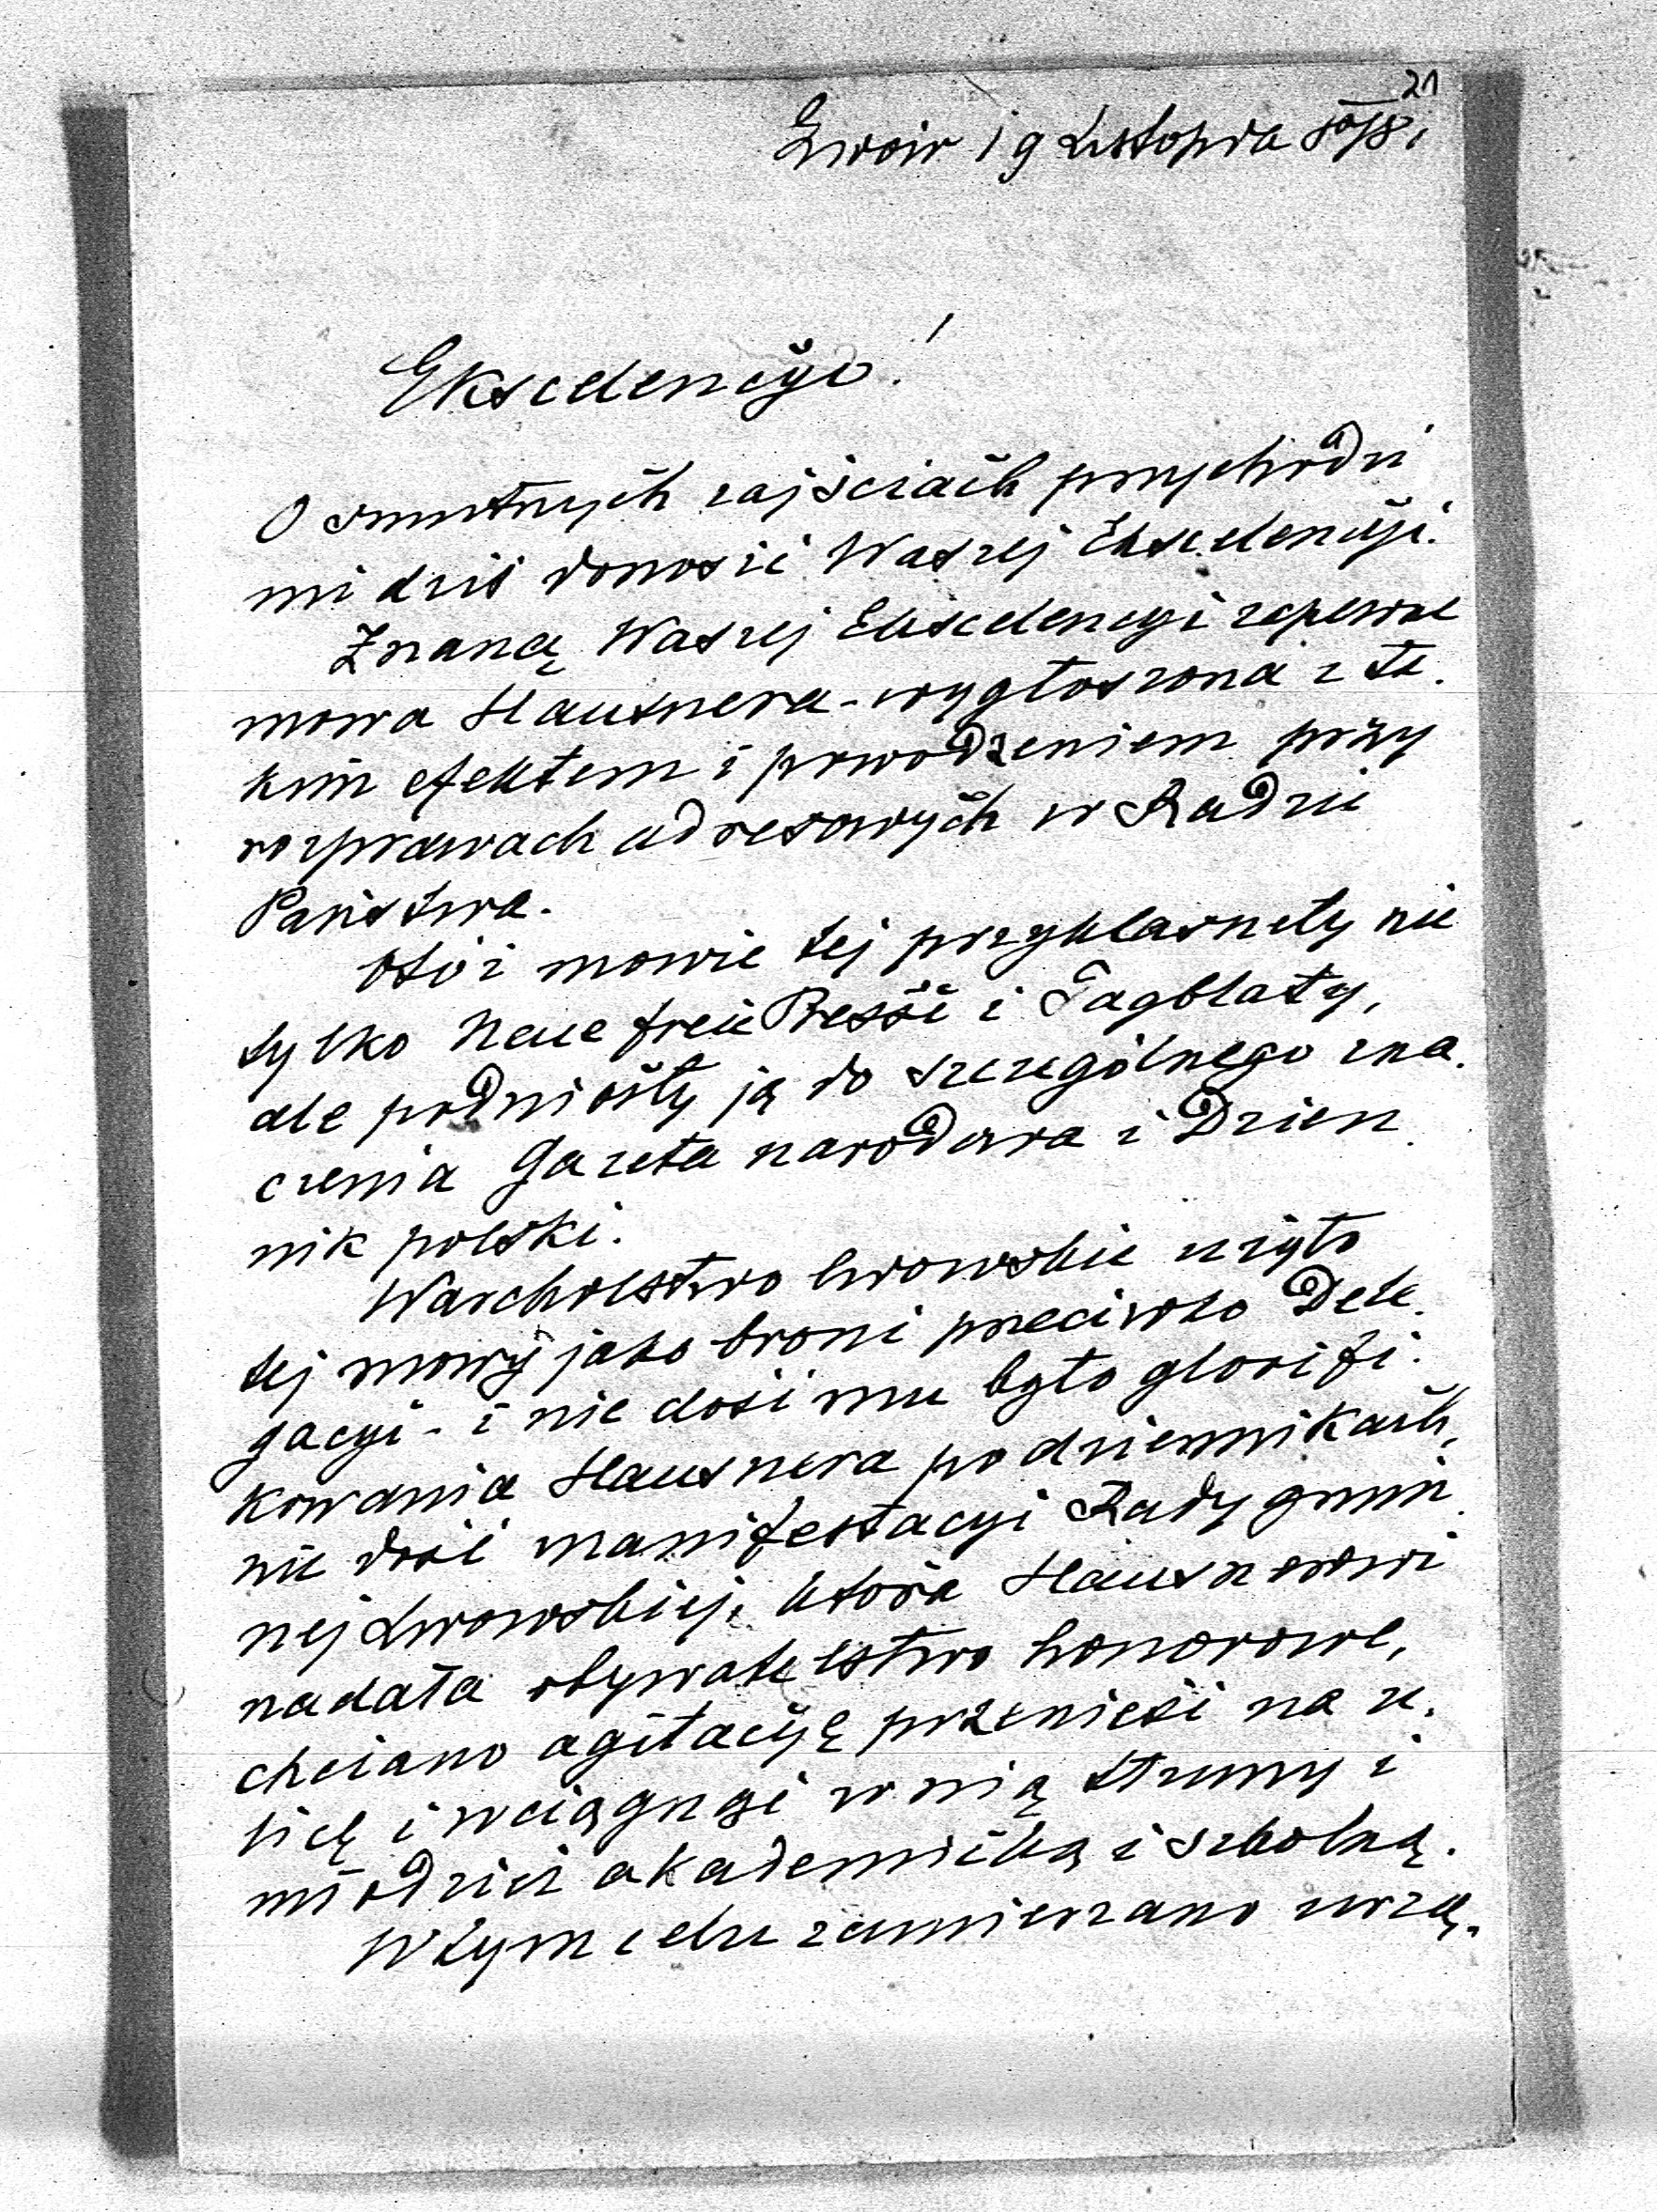 21
Lwów 19 Listopada
Ekscelencyo!
O smutnych zajściach przychodzi
mi dziś donosić Waszej Ekscelencyi.
Znaną Waszej Ekscelencyi zapewne
mowa Hausnera - wygłoszona z ta-
kim efektem i powodzeniem przy
rozprawach adresowych w Radzie
Państwa.
Otóż mowie tej przyklasnęły nie
tylko Neue freie Presse i Tagblaty,
ale podniosły ją do szczególnego zna-
czenia Gazeta narodowa i Dzien-
nik polski.
Warcholstwo lwowskie użyto
tej mowy jako broni przeciwko Dele-
gacyi - i nie dość mu było glorifi-
kowania Hausnera po dziennikach,
nie dość manifestacyi Rady gmin-
nej Lwowskiej, która Hausnerowi
nadała obywatelstwo honorowe,
chciano agitacyję przenieść na u-
licę i wciągnąć w nią tłumy i
młodzież akademicką i szkolną.
W tym celu zamierzano urzą-